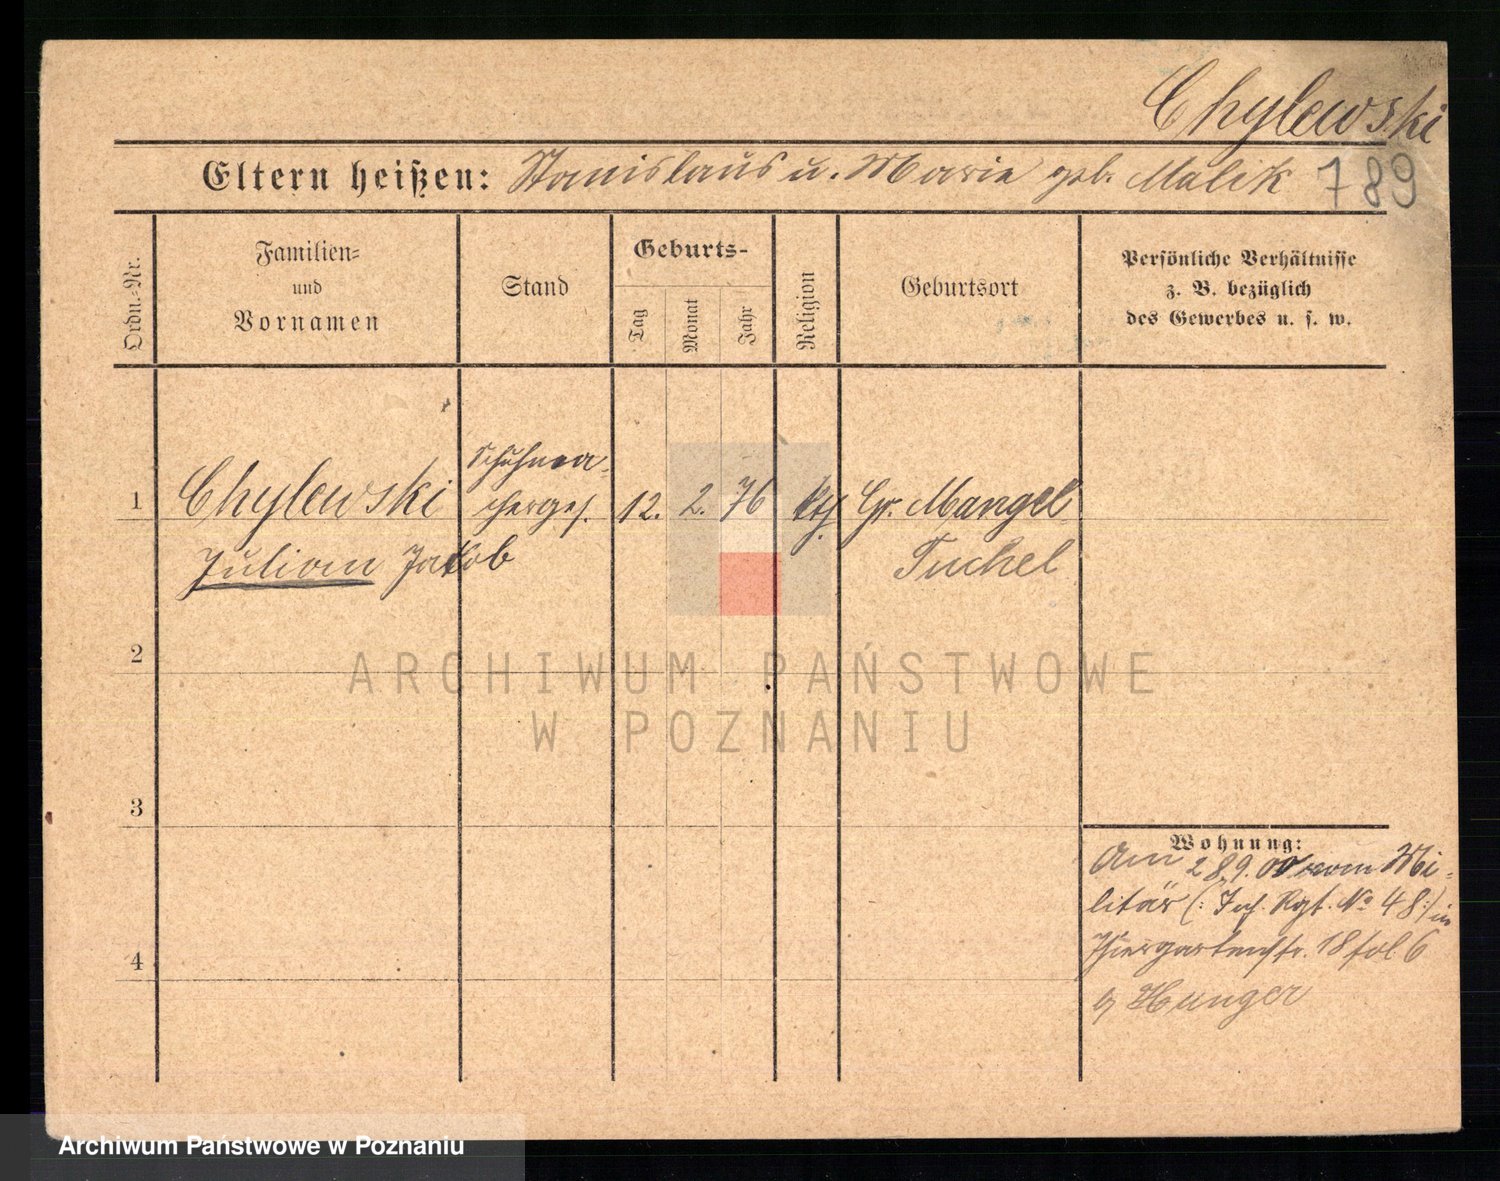 Chylewski
Eltern heißen: Stanislaus u. Marie geb. Malik 789
Ordn.-Nr.
Familien-
und
Vornamen
Stand
Geburts-
Tag
Monat
Jahr
Religion
Geburtsort
Persönliche Verhältnisse
z. B. bezüglich
des Gewerbes u. s. w.
1 Chylewski Schuhma- 12. 2. 76 kth Gr. Mangel
cherges.
Julian Jakob Tuchel
2
ARCHIWUM PAŃSTWOWE
W POZNANIU
3
Wohnung:
Am 28.9.00 vom Mi-
litär (: Inf. Rgt. No 48 :) in
Thiergartenstr. 18 fol 6
b Hunger
4
Archiwum Państwowe w Poznaniu